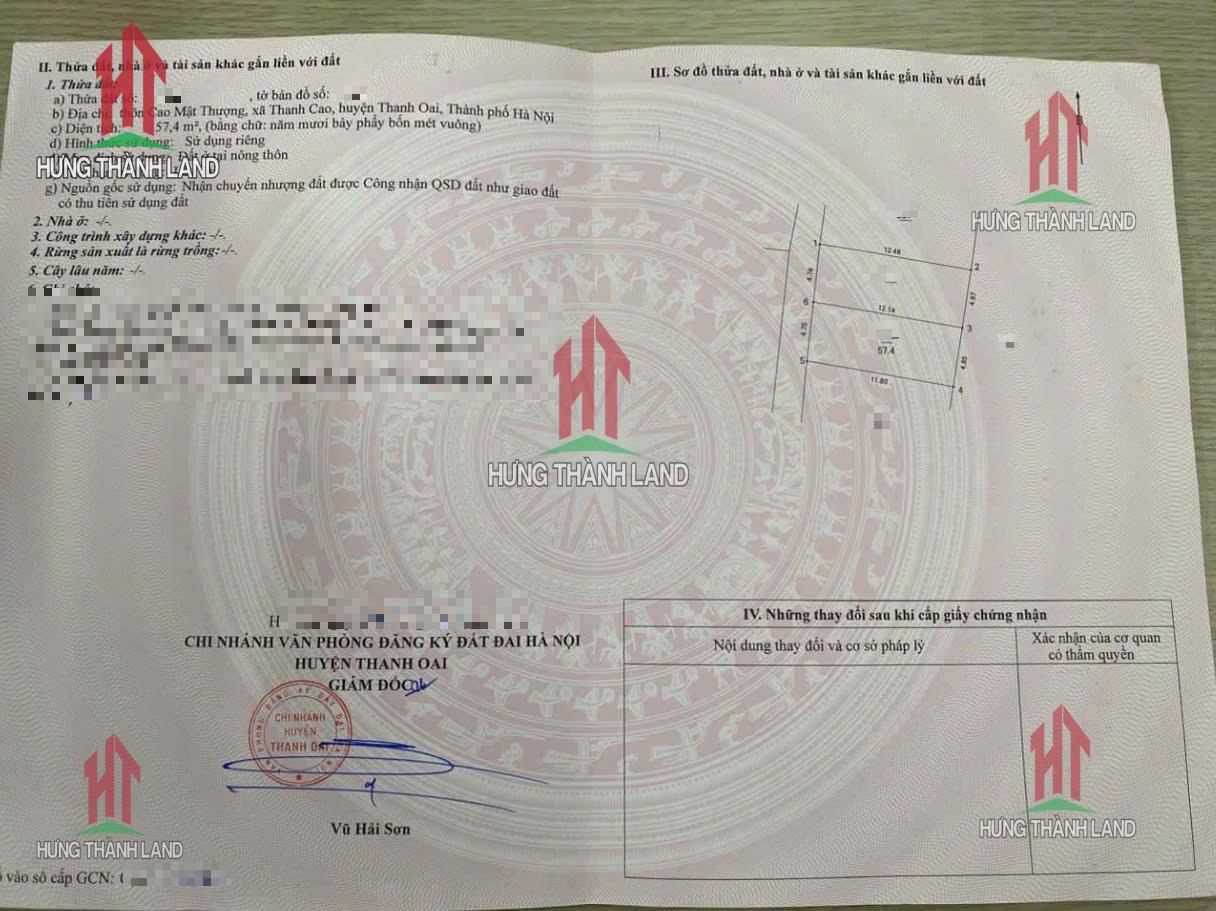 II. Thửa đất, nhà ở và tài sản khác gắn liền với đất
1. Thửa đất:
a) Thửa đất số: , tờ bản đồ số:
b) Địa chỉ: thôn Cao Mật Thượng, xã Thanh Cao, huyện Thanh Oai, Thành phố Hà Nội
c) Diện tích: 57,4 m², (bằng chữ: năm mươi bảy phẩy bốn mét vuông)
d) Hình thức sử dụng: Sử dụng riêng
Đất ở tại nông thôn
g) Nguồn gốc sử dụng: Nhận chuyển nhượng đất được Công nhận QSD đất như giao đất
có thu tiền sử dụng đất
2. Nhà ở: -/-.
3. Công trình xây dựng khác: -/-.
4. Rừng sản xuất là rừng trồng: -/-.
5. Cây lâu năm: -/-.
H
CHI NHÁNH VĂN PHÒNG ĐĂNG KÝ ĐẤT ĐAI HÀ NỘI
HUYỆN THANH OAI
GIÁM ĐỐC
CHI NHÁNH
HUYỆN
THANH OAI
Vũ Hải Sơn
vào sổ cấp GCN:
III. Sơ đồ thửa đất, nhà ở và tài sản khác gắn liền với đất
B
1
12.48
2
4.74
4.87
6
12.14
3
4.75
57.4
4.85
5
11.80
4
IV. Những thay đổi sau khi cấp giấy chứng nhận
Nội dung thay đổi và cơ sở pháp lý
Xác nhận của cơ quan
có thẩm quyền
HƯNG THÀNH LAND
HƯNG THÀNH LAND
HƯNG THÀNH LAND
HƯNG THÀNH LAND
HƯNG THÀNH LAND